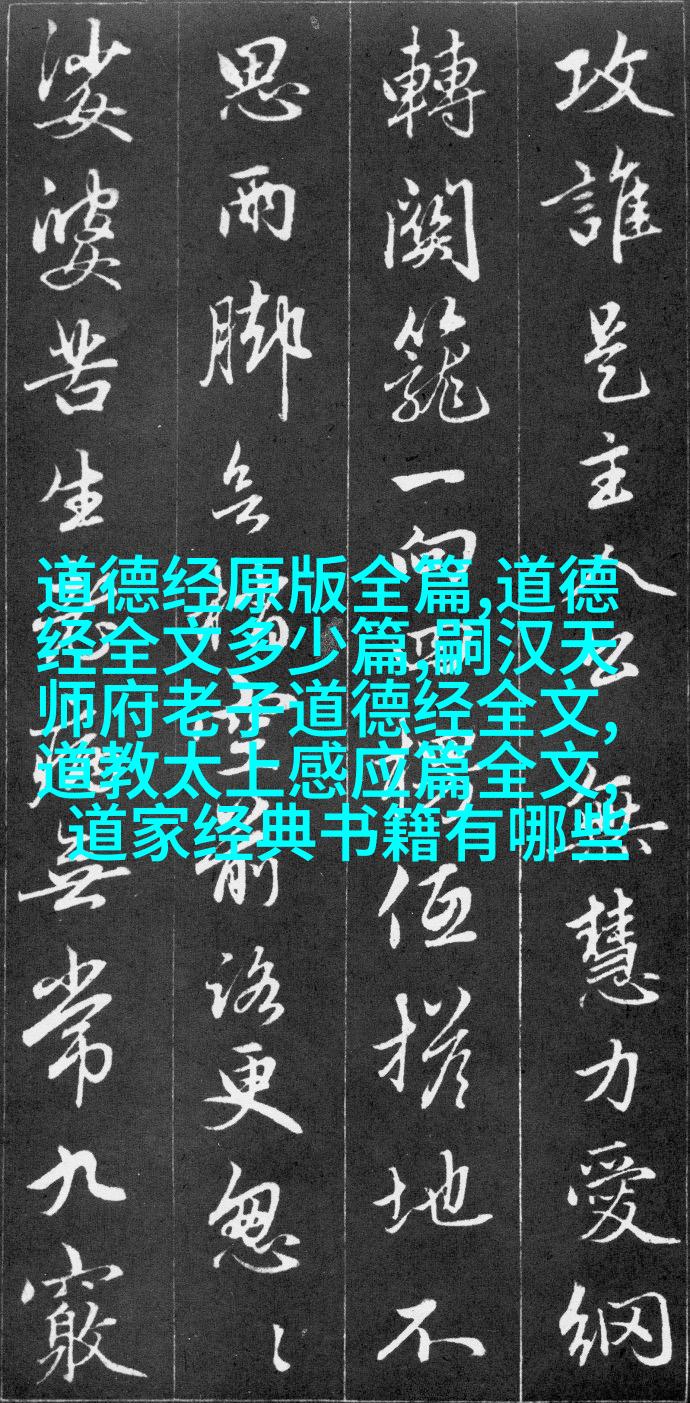 攻誰是主人公無慧力愛
轉關籠一向地不
思兩脚前路更怱
娑婆苦生無常九竅
道德经原版全篇,道德
经全文多少篇,嗣汉天
师府老子道德经全文,
道教太上感应篇全文,
道家经典书籍有哪些